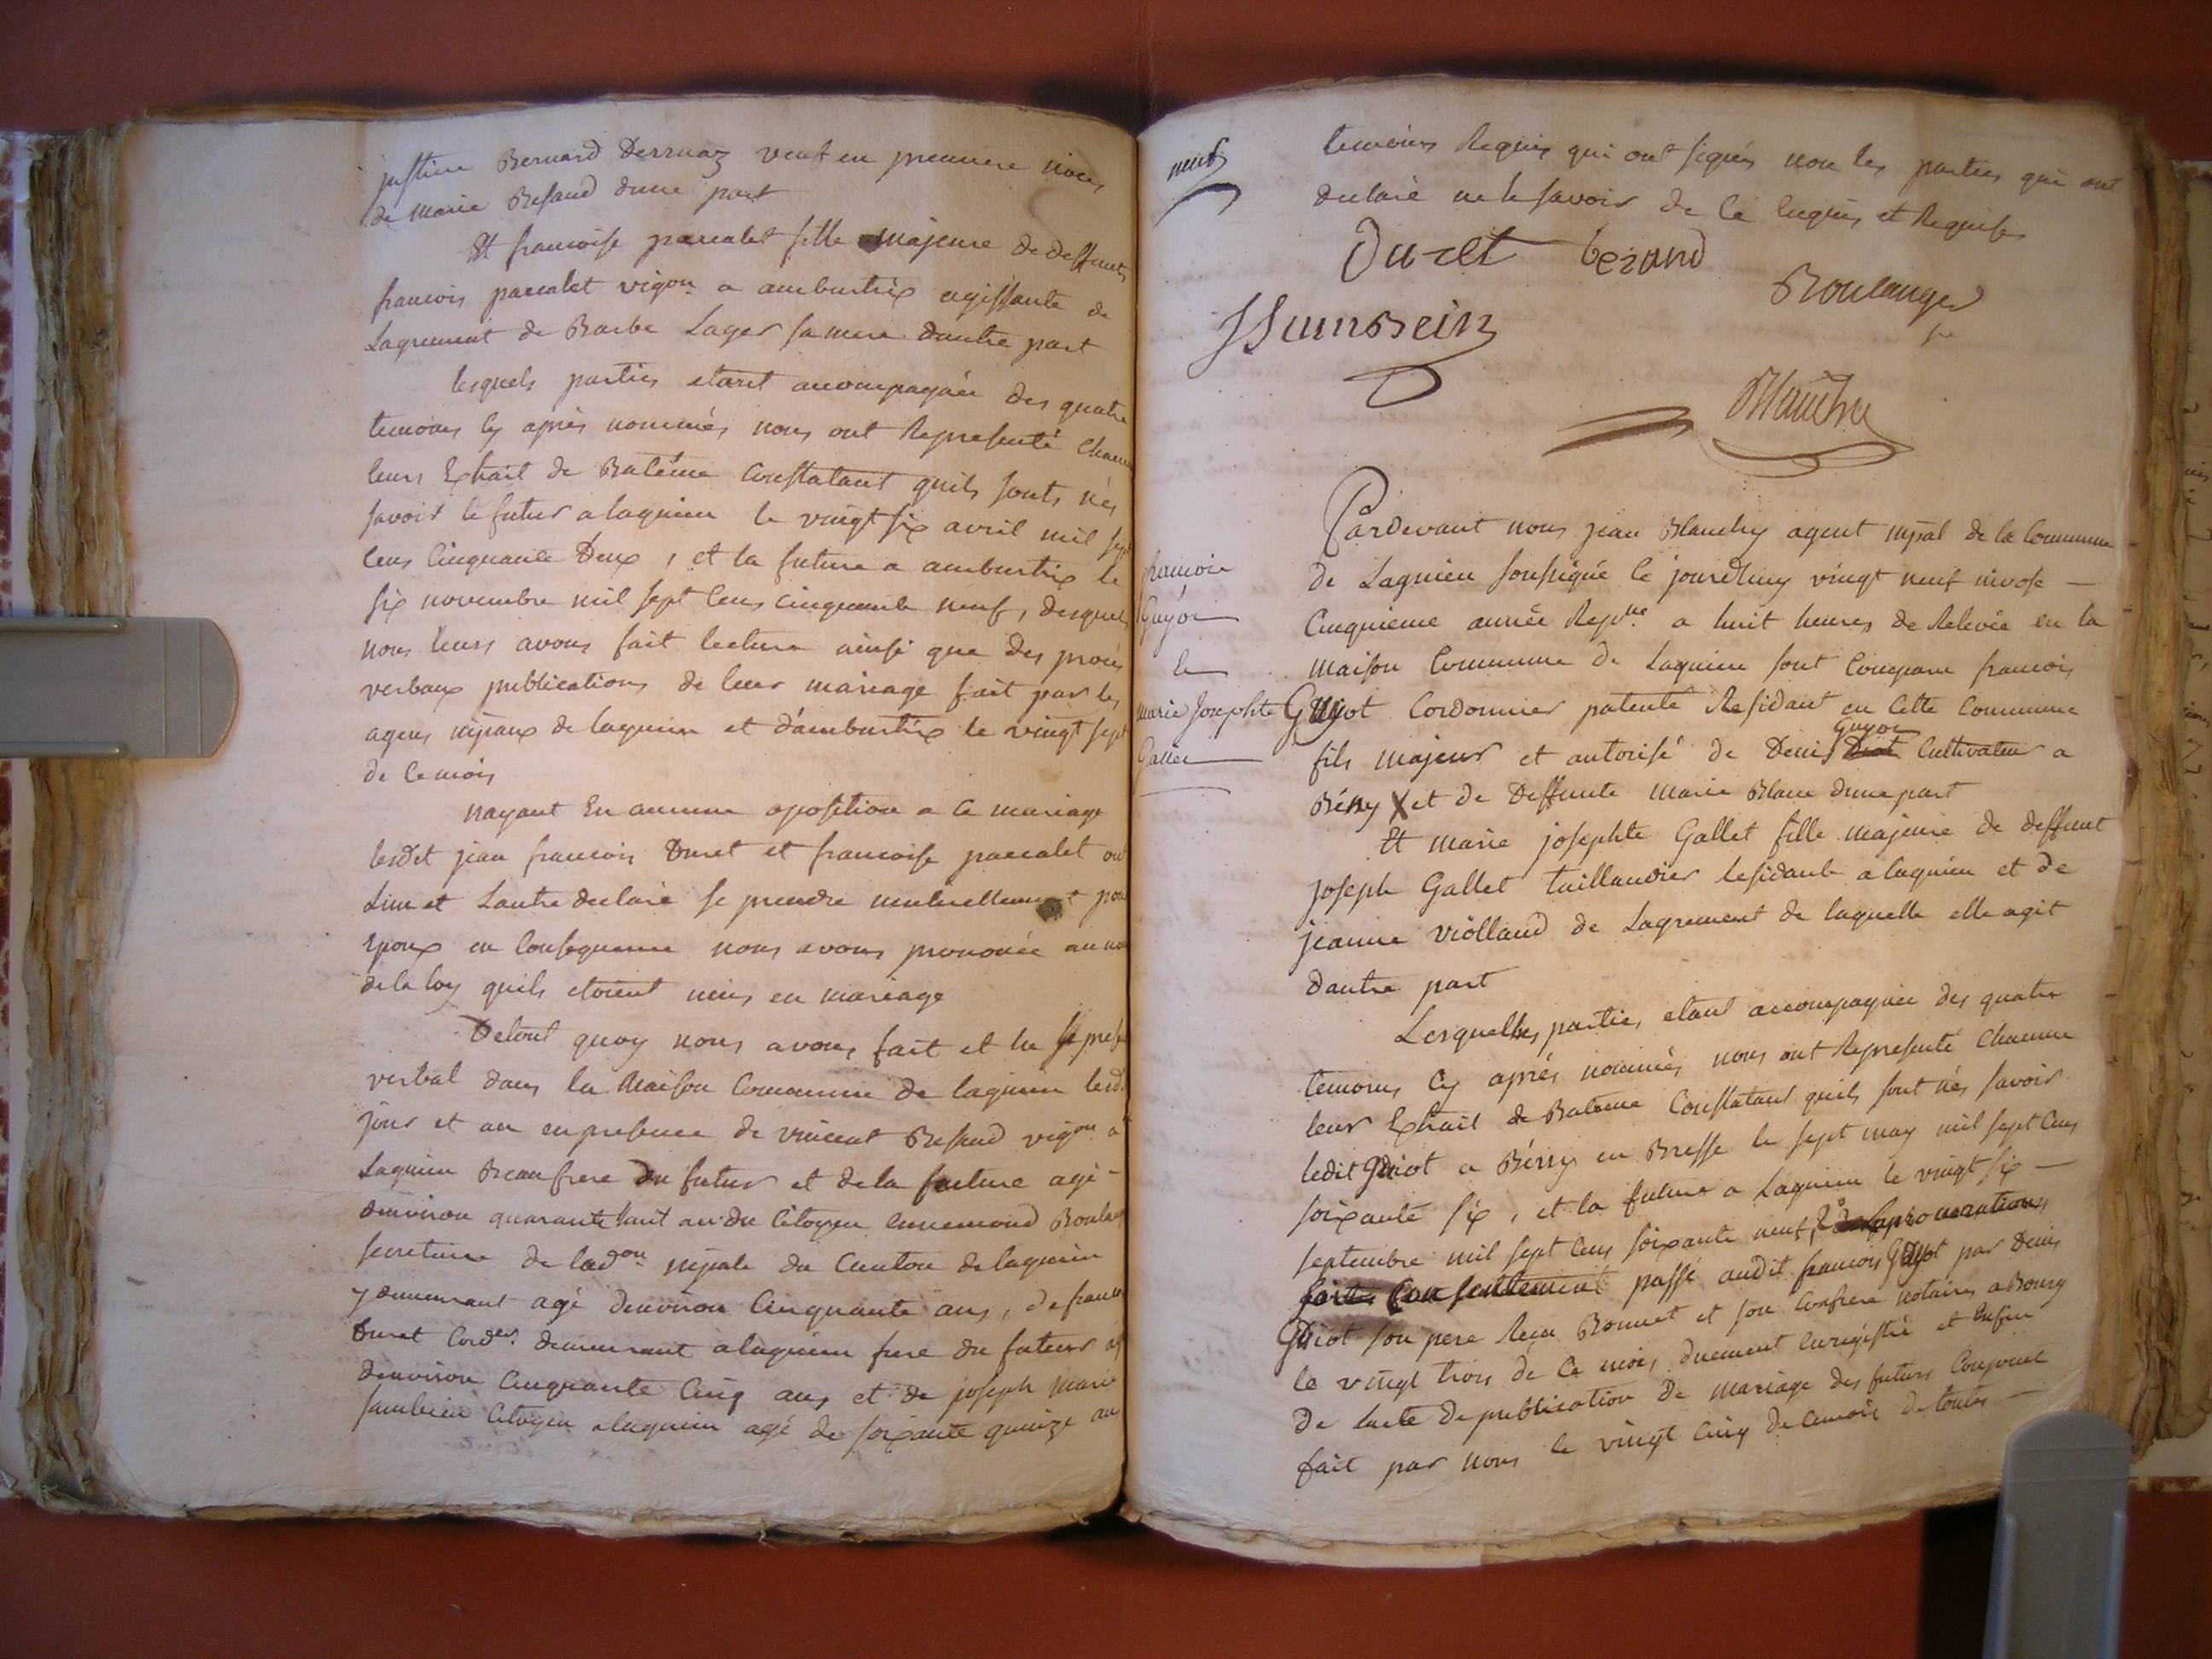 justine Bernard Derruaz veuf en premiere noces
de Marie Besand dune part
Et francoise pascalet fille majeure de deffunts
francois pascalet vigon a ambutrix agissante de
Lagrement de Barbe Lager sa mere dautre part
lesquels parties etant accompagnée des quatre
temoins cy après nommés, nous ont Representé Chacun
leurs Extrait de Batême Constatant quils sonts nés
savoir le futur a lagnieu le vingt six avril mil sept
Cens Cinquante Deux, et la future a ambutrix le
six novembre mil sept Cens Cinquante neuf, desquels
nous leurs avons fait lecture ainsi que des procès
verbaux publications de leur mariage fait par les
agens mpaux de lagnieu et d'ambutrix le vingt sept
de Ce mois
nayant Eu aucune oposition a Ce mariage
lesdet jean francois Duret et francoise pascalet ont
Lun et Lautre declaré se prendre mutuellement pour
Epoux en Consequence nous avons prononcé au nom
de la loy quils etoient unis en mariage
De tout quoy nous avons fait et lu le pres
verbal dans la Maison Commune de lagnieu lesd.
jour et an en presence de vincent Besand vigon a
Lagnieu Beaufrere du futur et de la future agé -
denviron quarante huit an du Citoyen ennemond Boulanger
secretaire de lad.on mpale du Canton de lagnieu
y demeurant agé denviron Cinquante ans, de francois
Duret Corder. demeurant a lagnieu frere du futeur agé
denviron Cinquante Cinq ans et de joseph Marie
Citoyen a lagnieu agé de soixante quinze an
neuf
temoins Requis qui ont signés non les parties qui ont
declaré ne le savoir de Ce Enquis et Requises
Duret besand
Boulanger
Blanchy
Pardevant nous jean Blanchy agent mpal de la Commune
de Lagnieu soussigné Ce jourdhuy vingt neuf nivose -
Cinquieme année Repu.ne a huit heures de Relevée en la
maison Commune de Lagnieu sont Comparu francois
Guyot Cordonnier patenté Residant en Cette Commune
Guyot
fils majeur et autorisé de Denis Cultivateur a
Bény X et de Deffunte Marie Blanc dune part
Et Marie josephte Gallet fille majeure de deffunt
joseph Gallet taillandier Residant a lagnieu et de
jeanne viollaud de Lagrement de laquelle elle agit
dautre part
Lesquelles parties etant accompagnée des quatre
temoins Cy après nommés nous ont Representé Chacune
leur Extrait de Bateme Constatant quils sont nés savoir
ledit Guiot a Bény en Bresse le sept may mil sept Cens
soixante six, et la future a Lagnieu le vingt six -
septembre mil sept Cens soixante neuf, 2° procurations
Consentement passé audit francois Guyot par Denis
Guiot son pere Recu Bonnet et son Confrere notaires a Bourg
le vingt trois de Ce mois duement enregistré et Enfin
de lacte de publication de mariage des futurs Conjoint
fait par nous le vingt Cinq de Cemois de toutes -
francois
Guyot
et
marie Josephte
Gallet